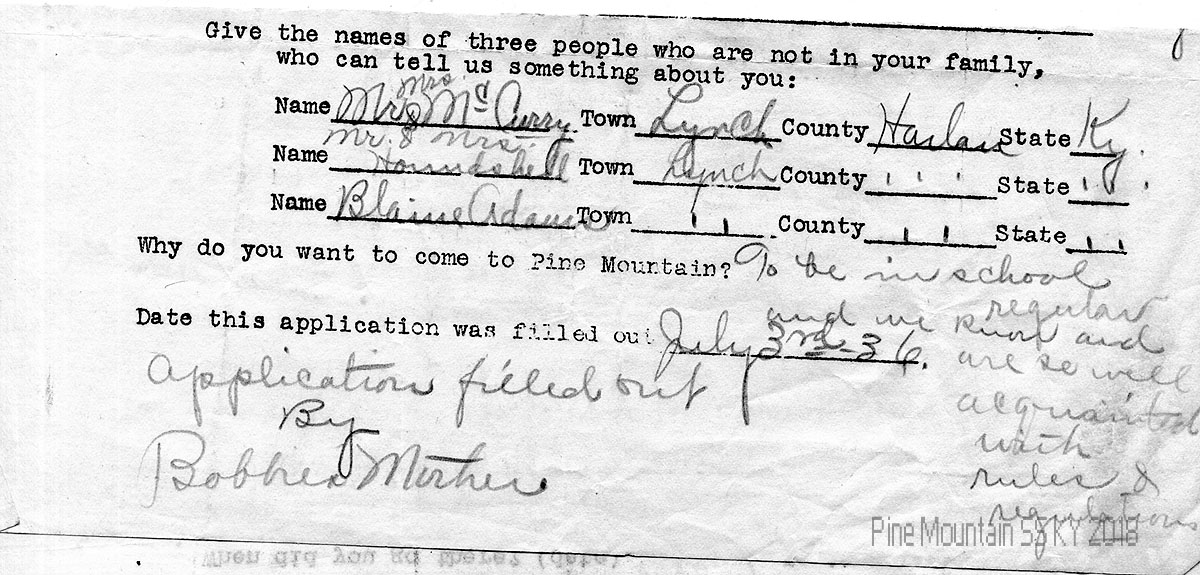 Give the names of three people who are not in your family,
who can tell us something about you:
Name Mr & Mrs Mc Curry Town Lynch County Harlan State Ky.
Name Mr. & Mrs. Houndshell Town Lynch County " " State " .
Name Blaine Adams Town " County " State "
Why do you want to come to Pine Mountain? To be in school
regular
and we know and
Date this application was filled out July 3rd-36.
are so well
acquainted
with
rules &
regulations
Application filled out
By
Bobbies Mother.
Pine Mountain SS KY 2018
When did you go there? (date)